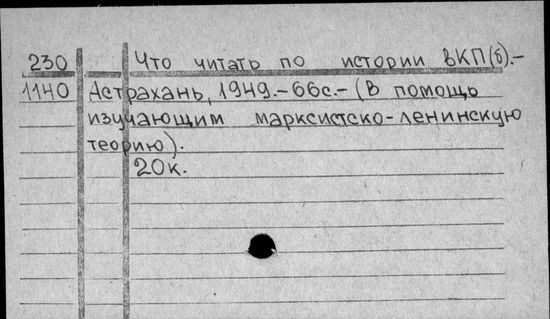 230 Что читать по истории ВКП(б).-
1140 Астрахань, 1949.-66с.-(В помощь
изучающим марксистско-ленинскую
теорию).
20к.